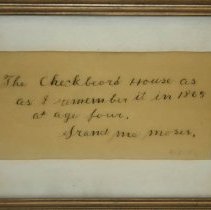 The Checkbeard House as
as I remember it in 1865
at age four.
Grand ma moses.